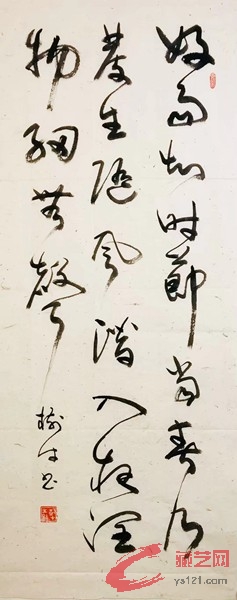 好雨知时節當春乃
發生随风潛入夜潤
物細無聲
藏艺网
ys121.com